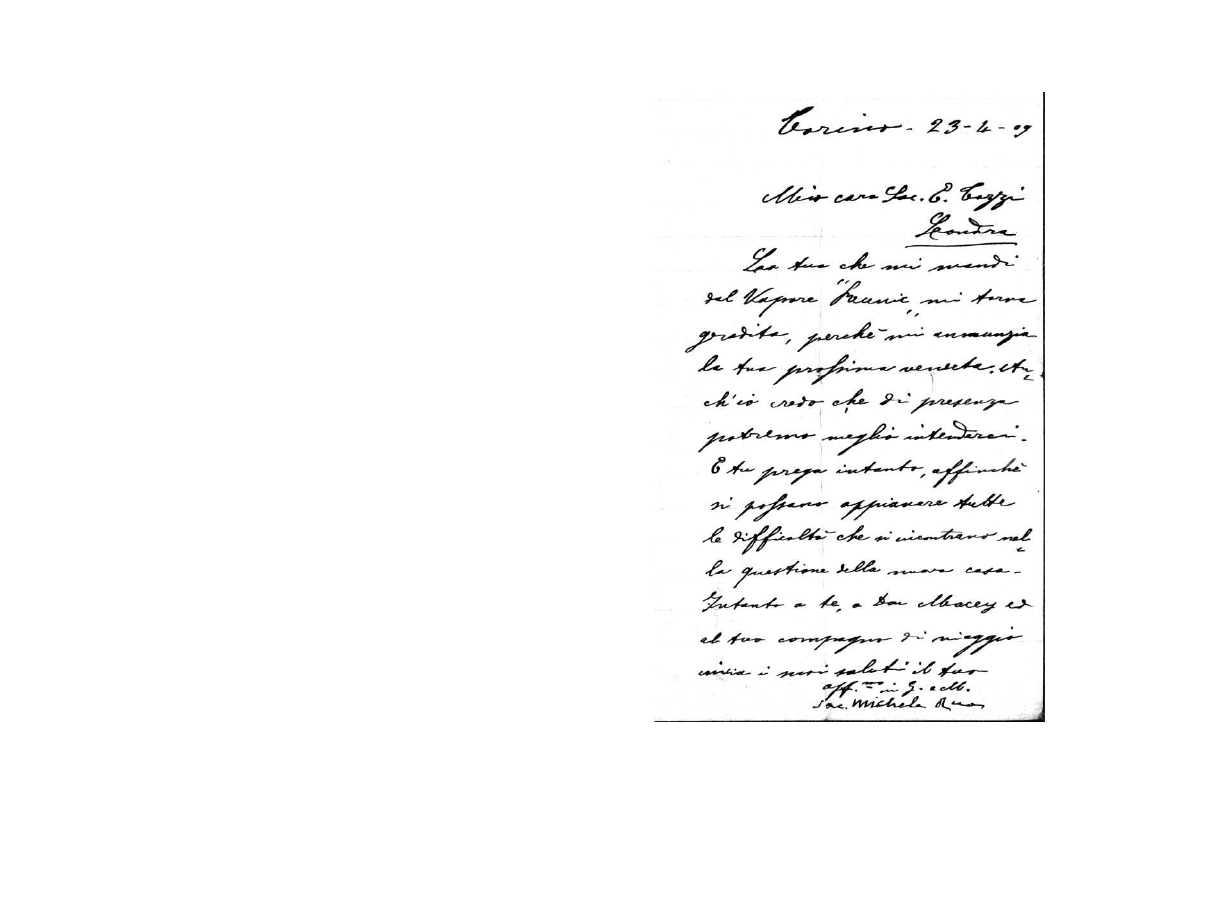 Torino - 23-4-09
Mio caro Sac. E. Tozzi
Londra
La tua che mi mandi
dal Vapore „ mi torna
gradita, perchè mi annunzia
la tua prossima venuta. An-
ch'io credo che di presenza
potremo meglio intenderci.
E tu prega intanto, affinchè
si possano appianare tutte
le difficoltà che si incontrano nel-
la questione della nuova casa.
Intanto a te, a Don Macey ed
al tuo compagno di viaggio
invia i suoi saluti il tuo
aff.mo in G. e M.
Sac. Michele Rua